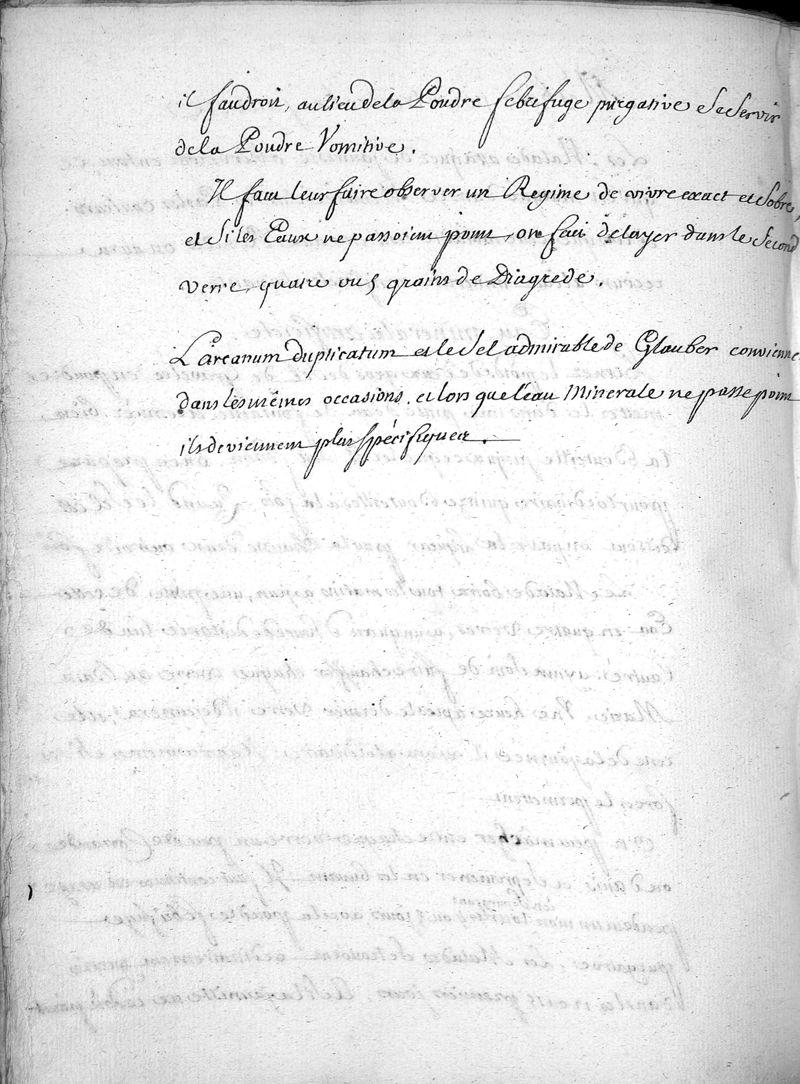 il faudroit, au lieu de la Poudre febrifuge purgative se servir
de la Poudre Vomitive.
Il faut leur faire observer un Regime de vivre exact et sobre,
et si les Eaux ne passoient point, on fait delayer dans le second
verre, quatre ou 5 grains de Diagrede.
L'arcanum duplicatum et le sel admirable de Glauber convienne
dans les mêmes occasions, et lors que l'eau Minerale ne passe point
ils deviennent plus spécifiques.